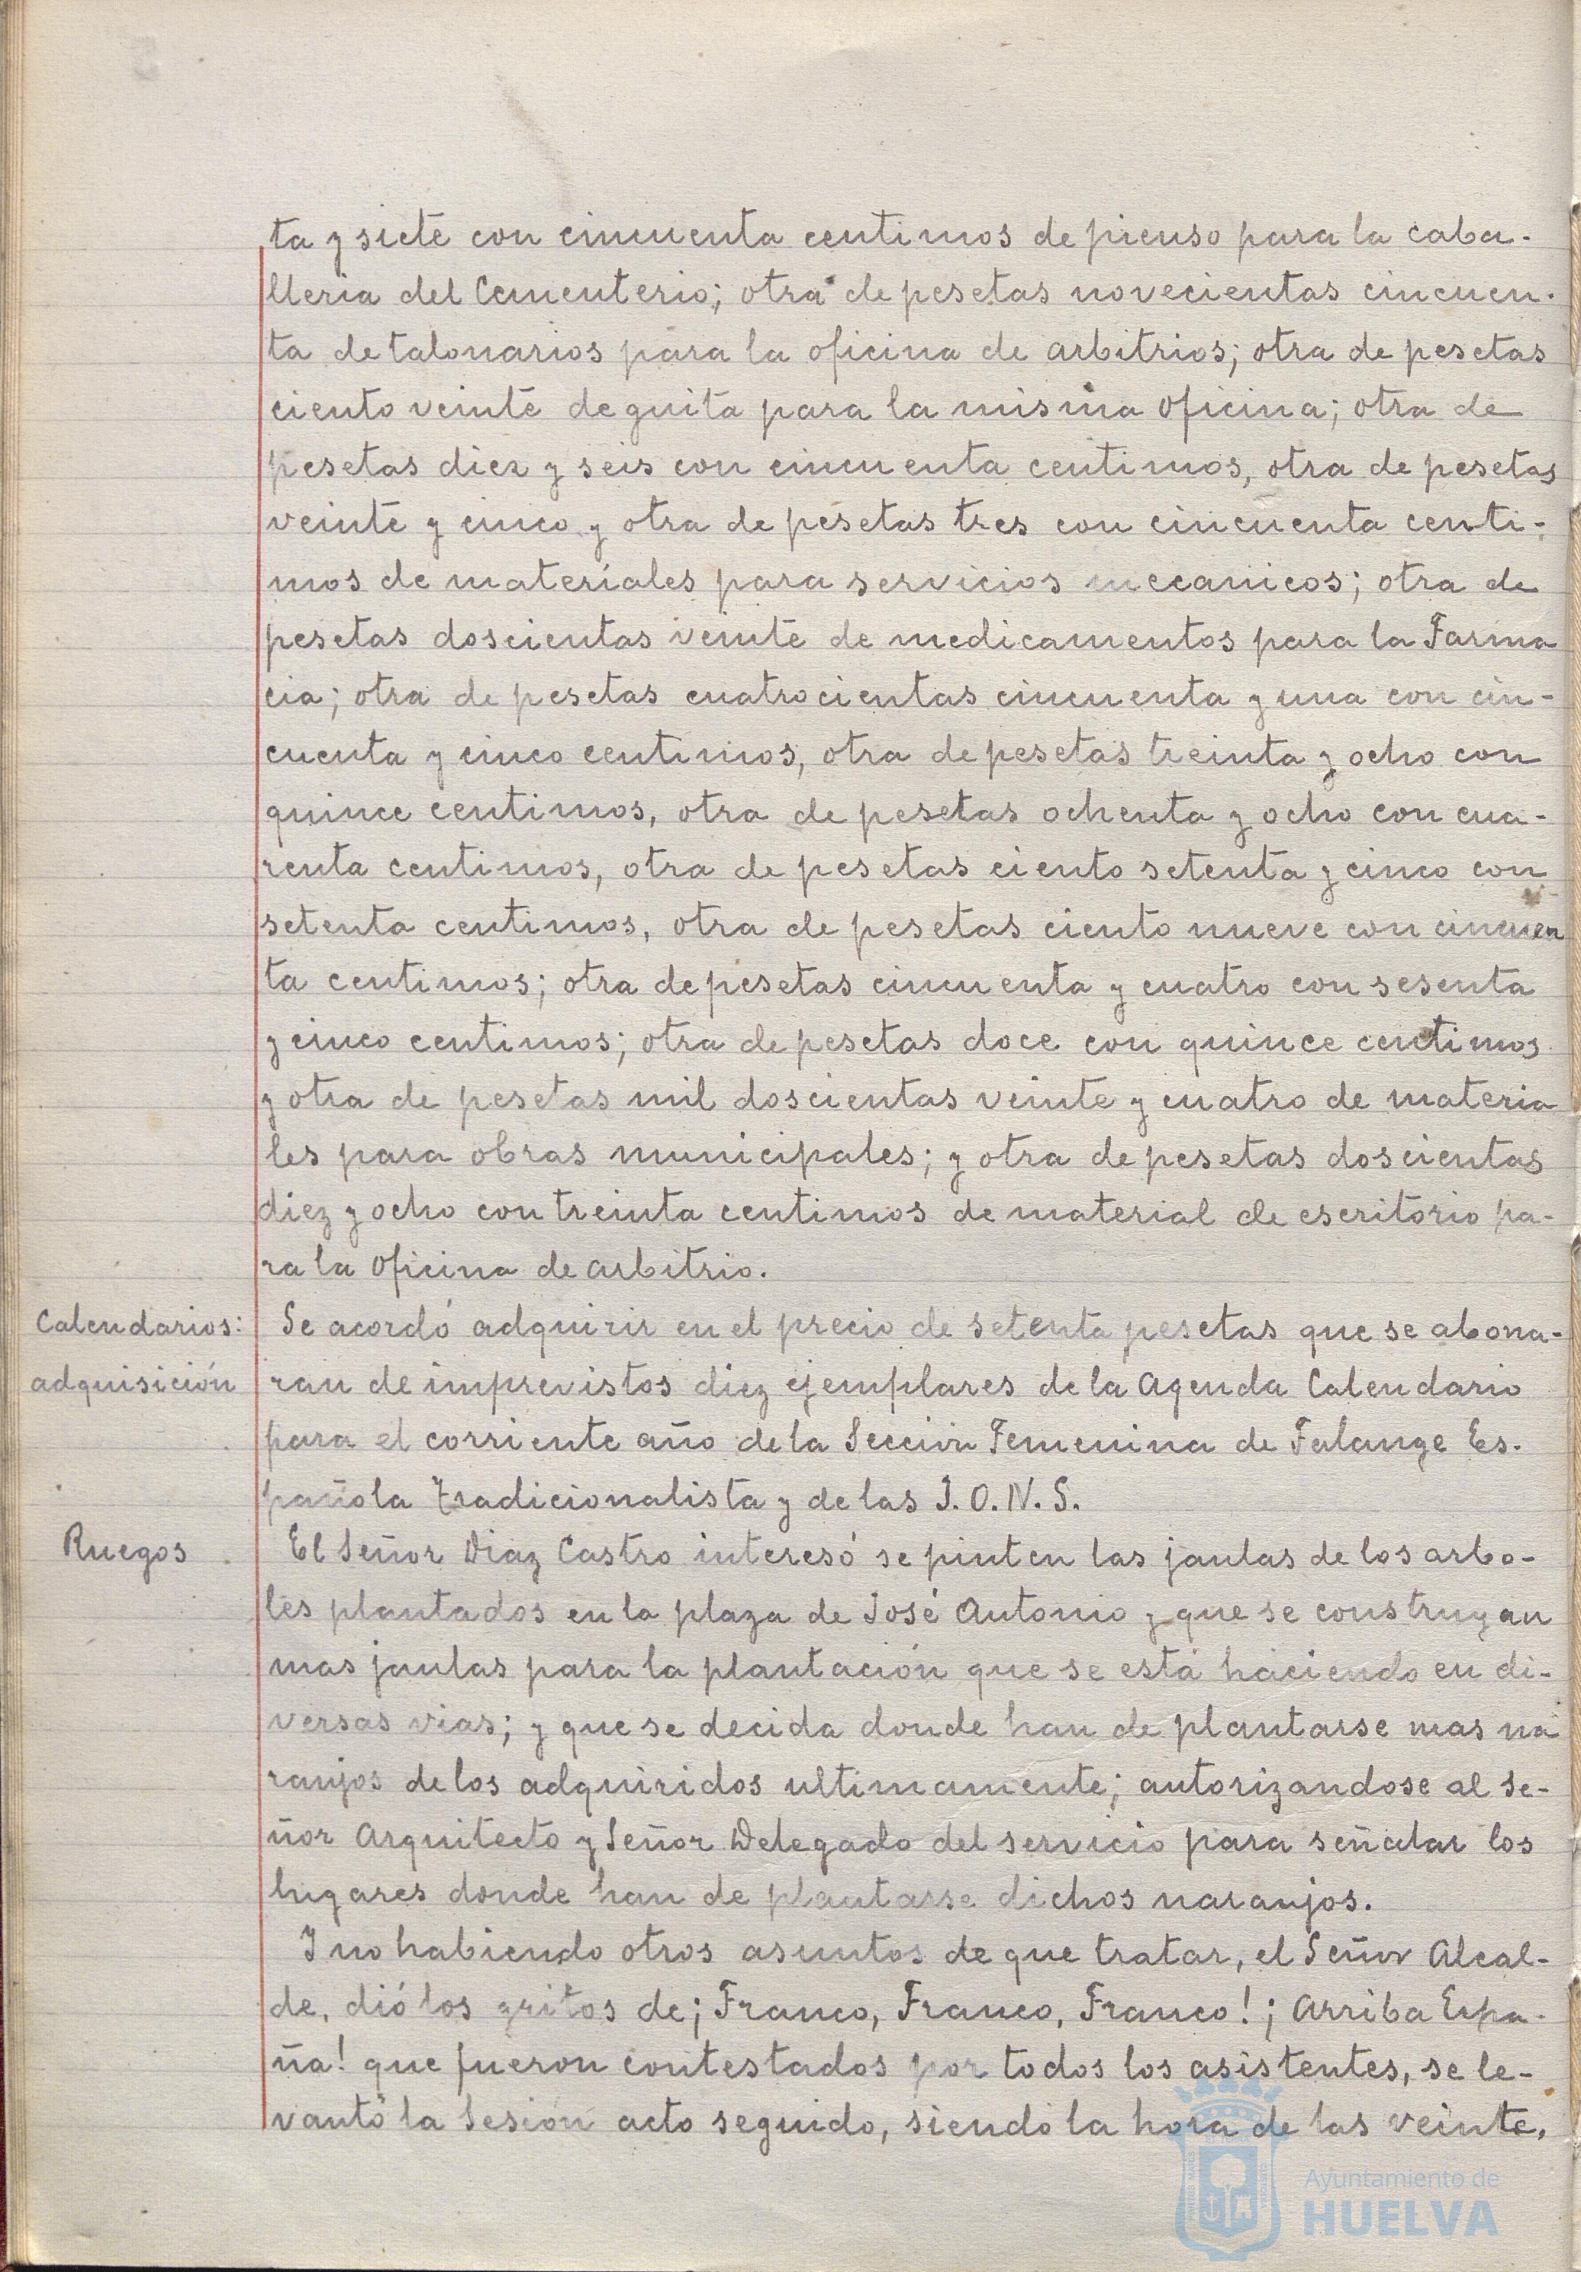 ta y siete con cincuenta centimos de pienso para la caba-
lleria del Cementerio; otra de pesetas novecientas cincuen-
ta de talonarios para la oficina de arbitrios; otra de pesetas
ciento veinte de guita para la misma oficina; otra de
pesetas diez y seis con cincuenta centimos, otra de pesetas
veinte y cinco y otra de pesetas tres con cincuenta centi-
mos de materiales para servicios mecanicos; otra de
pesetas doscientas veinte de medicamentos para la Farma
cia; otra de pesetas cuatrocientas cincuenta y una con cin-
cuenta y cinco centimos, otra de pesetas treinta y ocho con
quince centimos, otra de pesetas ochenta y ocho con cua-
renta centimos, otra de pesetas ciento setenta y cinco con
setenta centimos, otra de pesetas ciento nueve con cincuen
ta centimos; otra de pesetas cincuenta y cuatro con sesenta
y cinco centimos; otra de pesetas doce con quince centimos
y otra de pesetas mil doscientas veinte y cuatro de materia
les para obras municipales; y otra de pesetas doscientas
diez y ocho con treinta centimos de material de escritorio pa-
ra la Oficina de arbitrio.
Calendarios:
adquisición
Se acordó adquirir en el precio de setenta pesetas que se abona-
ran de imprevistos diez ejemplares de la Agenda Calendario
para el corriente año de la Sección Femenina de Falange Es-
pañola Tradicionalista y de las J.O.N.S.
Ruegos
El Señor Diaz Castro interesó se pinten las jaulas de los arbo-
les plantados en la plaza de José Antonio y que se construyan
mas jaulas para la plantación que se está haciendo en di-
versas vias; y que se decida donde han de plantarse mas na
ranjos de los adquiridos ultimamente; autorizandose al Se-
ñor Arquitecto y Señor Delegado del servicio para señalar los
lugares donde han de plantarse dichos naranjos.
Y no habiendo otros asuntos de que tratar, el Señor Alcal-
de, dió los gritos de ¡Franco, Franco, Franco! ¡Arriba Espa-
ña! que fueron contestados por todos los asistentes, se le-
vantó la Sesión acto seguido, siendo la hora de las veinte,
Ayuntamiento de
HUELVA